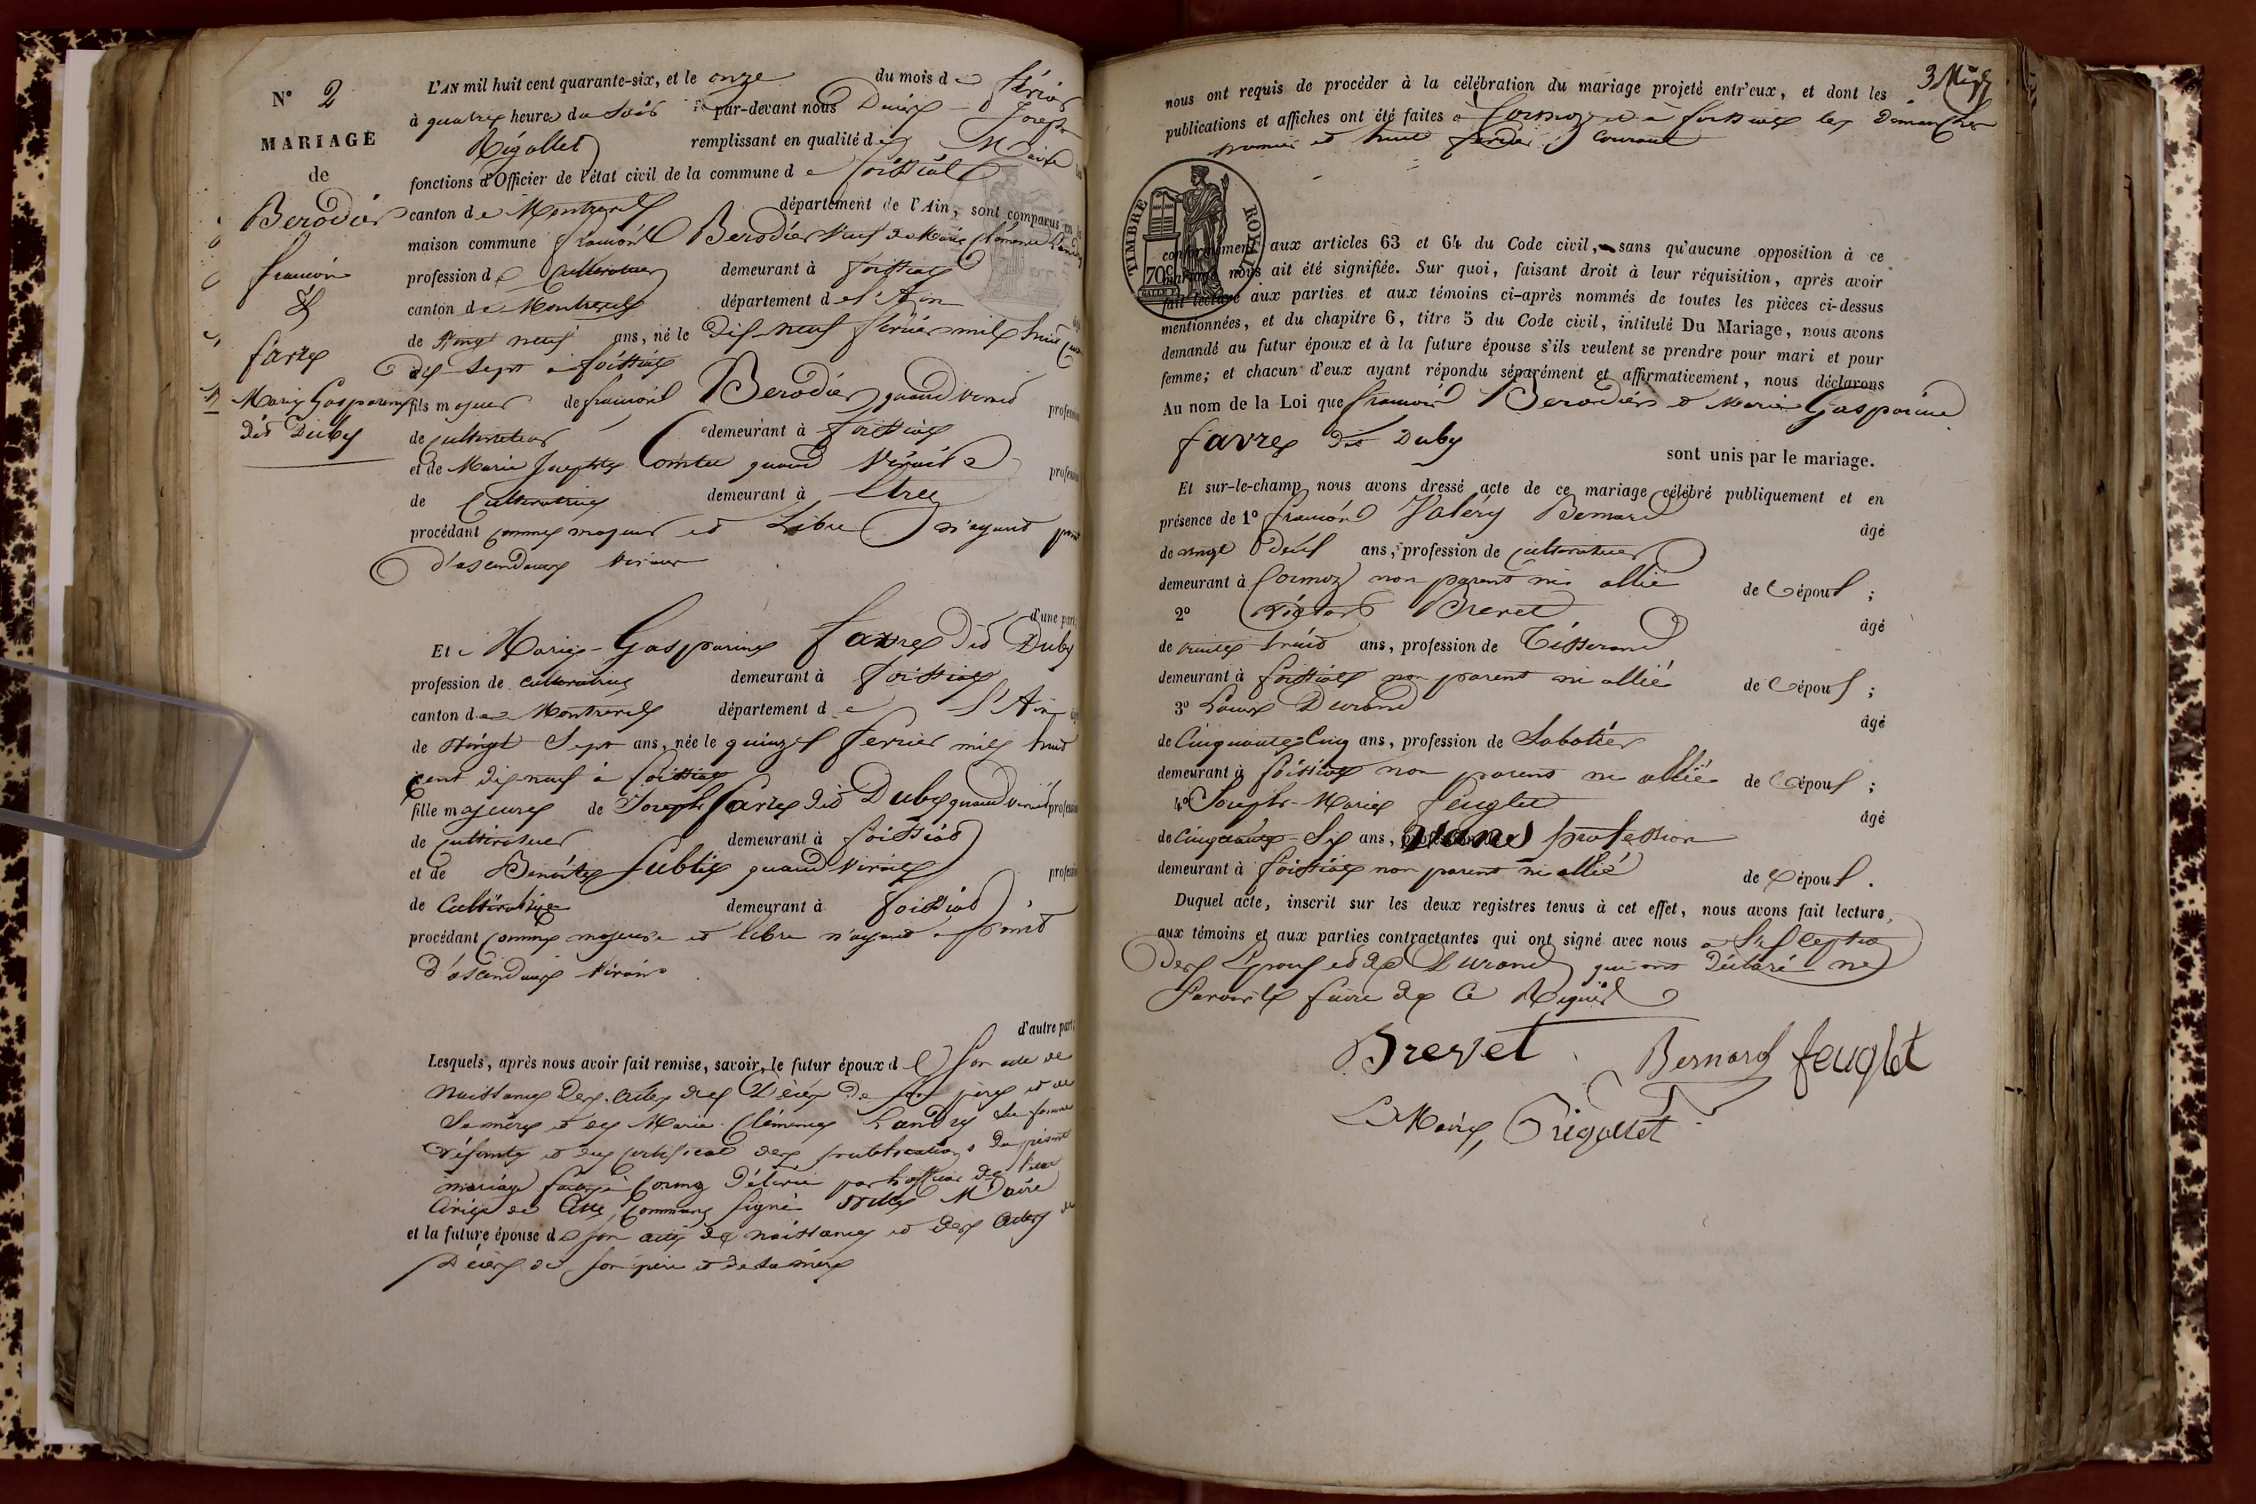 N° 2
MARIAGE
de
Berodier
francois
&
favre
Marie Gasparine
dit Duby
L'AN mil huit cent quarante-six, et le onze du mois de février
à quatre heures du soir par-devant nous Joseph
Rigollet remplissant en qualité de Maire
fonctions d'Officier de l'état civil de la commune de foissiat
canton de Montrevel département de l'Ain, sont comparus en la
maison commune francois Berodier veuf de Marie Clémence Landry
profession de Cultivateur demeurant à foissiat
canton de Montrevel département de l'Ain
de vingt neuf ans, né le dix neuf février mil huit cent
dix sept à foissiat
fils majeur de francois Berodier quand vivait profession
de cultivateur demeurant à foissiat
et de Marie Josephte Comtet quand vivait profession
de Cultivatrice demeurant à
procédant comme majeur et libre n'ayant point
d'ascendans vivans
d'une part;
Et Marie-Gasparine favre dit Duby
profession de cultivatrice demeurant à foissiat
canton de Montrevel département de l'Ain âgée
de vingt sept ans, née le quinze fevrier mil huit
cent dix neuf à foissiat
fille majeure de Joseph favre dit Duby quand vivait profession
de cultivateur demeurant à foissiat
et de Benoite Sublie quand vivait profession
de Cultivatrice demeurant à foissiat
procédant comme majeure et libre n'ayant point
d'ascendans vivans
d'autre part;
Lesquels, après nous avoir fait remise, savoir, le futur époux de son acte de
naissance des actes de décès de son père et de
sa mère et de Marie Clémence Landry sa femme
défunte et du certificat des publications du présent
mariage faites à Cormoz délivré par l'officier de l'état
civil de cette commune signé Maire
et la future épouse de son acte de naissance et des actes de
décès de son père et de sa mère
3
nous ont requis de procéder à la célébration du mariage projeté entr'eux, et dont les
publications et affiches ont été faites à Cormoz et à foissiat les dimanches
premier et huit fevrier courant
TIMBRE ROYAL
70c
conformément aux articles 63 et 64 du Code civil, sans qu'aucune opposition à ce
mariage nous ait été signifiée. Sur quoi, faisant droit à leur réquisition, après avoir
fait lecture aux parties et aux témoins ci-après nommés de toutes les pièces ci-dessus
mentionnées, et du chapitre 6, titre 5 du Code civil, intitulé Du Mariage, nous avons
demandé au futur époux et à la future épouse s'ils veulent se prendre pour mari et pour
femme; et chacun d'eux ayant répondu séparément et affirmativement, nous déclarons
Au nom de la Loi que francois Berodier et Marie Gasparine
favre dit Duby sont unis par le mariage.
Et sur-le-champ nous avons dressé acte de ce mariage célébré publiquement et en
présence de 1° francois Valéry Bernard âgé
de vingt deux ans, profession de cultivateur
demeurant à Cormoz non parent ni allié de l'époux;
2° Victor Brevet âgé
de trente huit ans, profession de Tisserand
demeurant à foissiat non parent ni allié de l'époux;
3° Louis Durand âgé
de Cinquante-Cinq ans, profession de Sabotier
demeurant à foissiat non parent ni allié de l'époux;
4° Joseph-Marie feuglet âgé
de Cinquante-Six ans, sans profession
demeurant à foissiat non parent ni allié de l'époux.
Duquel acte, inscrit sur les deux registres tenus à cet effet, nous avons fait lecture,
aux témoins et aux parties contractantes qui ont signé avec nous à l'exception
des Epoux et de Durand qui ont déclaré ne
savoir le faire de ce Requis
Brevet Bernard feuglet
Le Maire, Rigollet